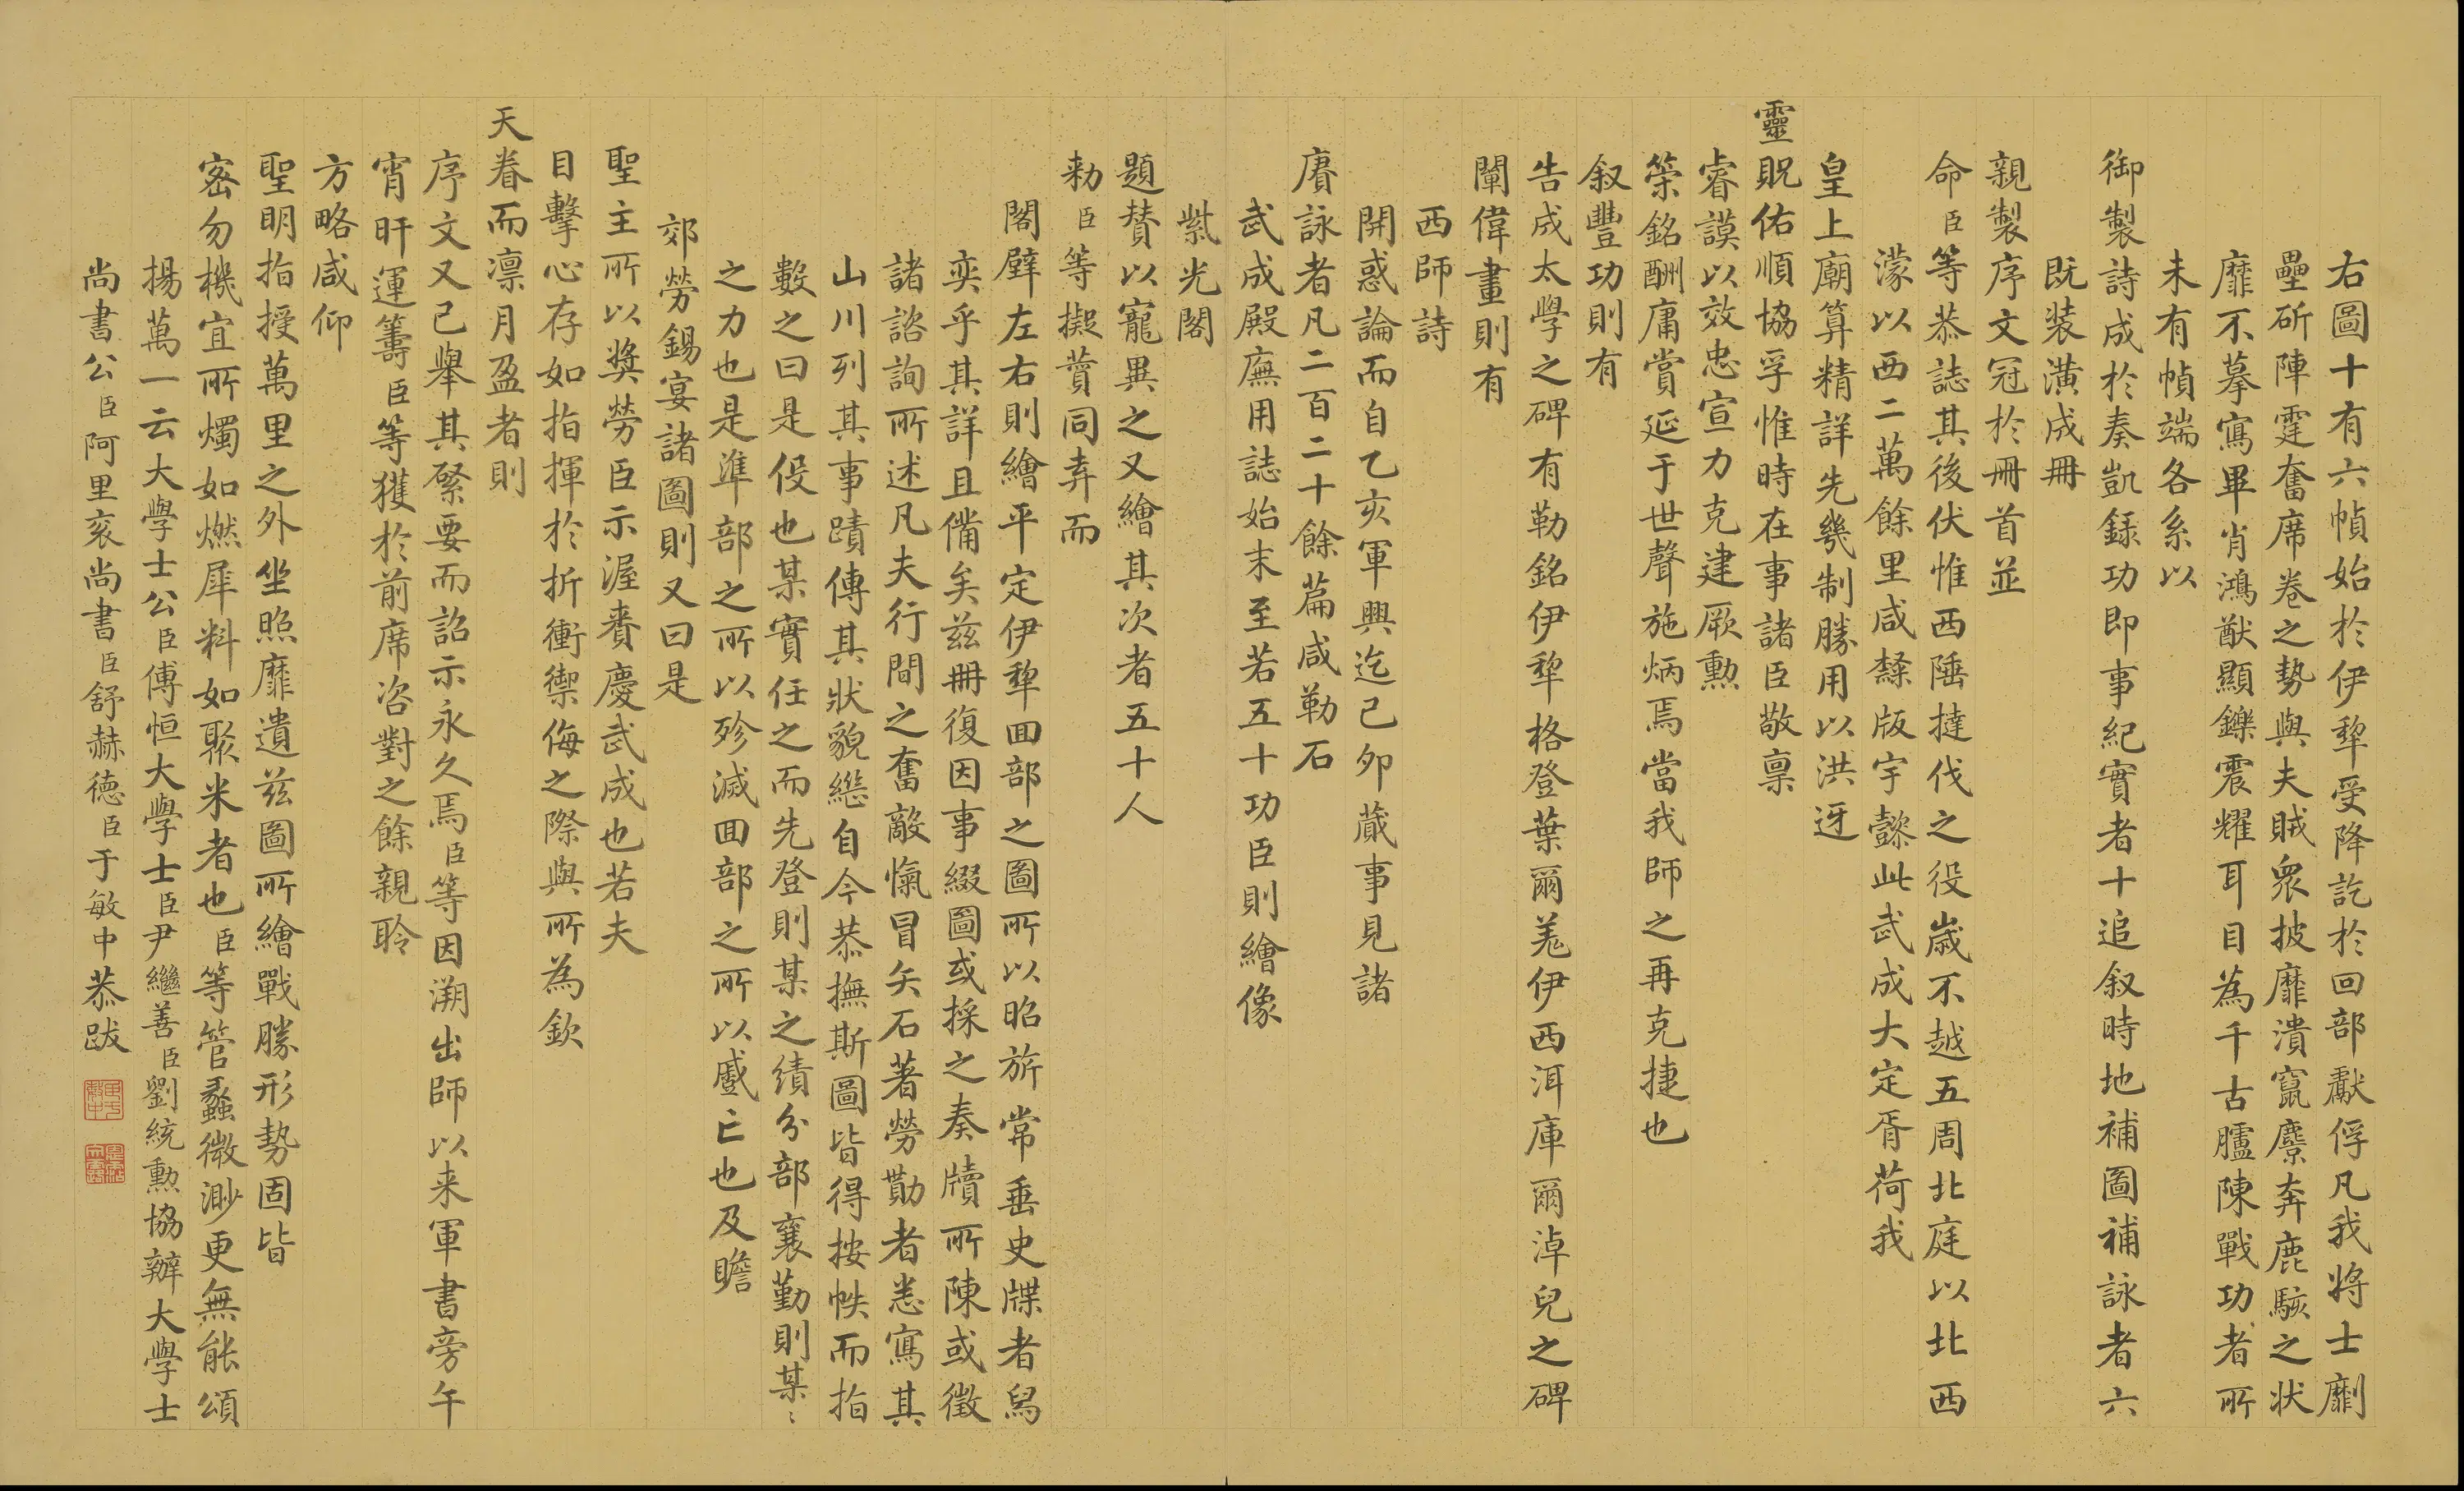 右圖十有六幀始於伊犂受降訖於回部獻俘凡我將士劘
壘斫陣霆奮席卷之勢與夫賊衆披靡潰竄麏奔鹿駭之狀
靡不摹寫畢肖鴻猷顯鑠震耀耳目為千古臚陳戰功者所
未有幀端各系以
御製詩成於奏凱録功即事紀實者十追叙時地補圖補詠者六
既装潢成冊
親製序文冠於冊首並
命臣等恭誌其後伏惟西陲撻伐之役歲不越五周北庭以北西
濛以西二萬餘里咸隸版宇懿此武成大定胥荷我
皇上廟算精詳先幾制勝用以洪迓
靈貺佑順協孚惟時在事諸臣敬禀
睿謨以效忠宣力克建厥勲
策銘酬庸賞延于世聲施炳焉當我師之再克捷也
叙豐功則有
告成太學之碑有勒銘伊犂格登葉爾羌伊西洱庫爾淖兒之碑
闡偉畫則有
西師詩
開惑論而自乙亥軍興迄己卯蕆事見諸
賡詠者凡二百二十餘篇咸勒石
武成殿廡用誌始末至若五十功臣則繪像
紫光閣
題賛以寵異之又繪其次者五十人
勅臣等擬賛同弆而
閣壁左右則繪平定伊犂囬部之圖所以昭旂常垂史牒者舄
奕乎其詳且備矣兹冊復因事綴圖或採之奏牘所陳或徵
諸諮詢所述凡夫行間之奮敵愾冒矢石著勞勩者悉寫其
山川列其事蹟傳其狀貌繼自今恭撫斯圖皆得按帙而指
數之曰是役也某實任之而先登則某之績分部襄勤則某〻
之力也是準部之所以殄滅囬部之所以蹙亡也及瞻
郊勞錫宴諸圖則又曰是
聖主所以奬勞臣示渥賚慶武成也若夫
目擊心存如指揮於折衝禦侮之際與所為欽
天眷而凛月盈者則
序文又已舉其綮要而詔示永久焉臣等因溯出師以来軍書旁午
宵旰運籌臣等獲於前席咨對之餘親聆
方略咸仰
聖明指授萬里之外坐照靡遺兹圖所繪戰勝形勢固皆
密勿機宜所燭如燃犀料如聚米者也臣等管蠡微渺更無能頌
揚萬一云大學士公臣傅恒大學士臣尹繼善臣劉統勲協辦大學士
尚書公臣阿里衮尚書臣舒赫德臣于敏中恭跋